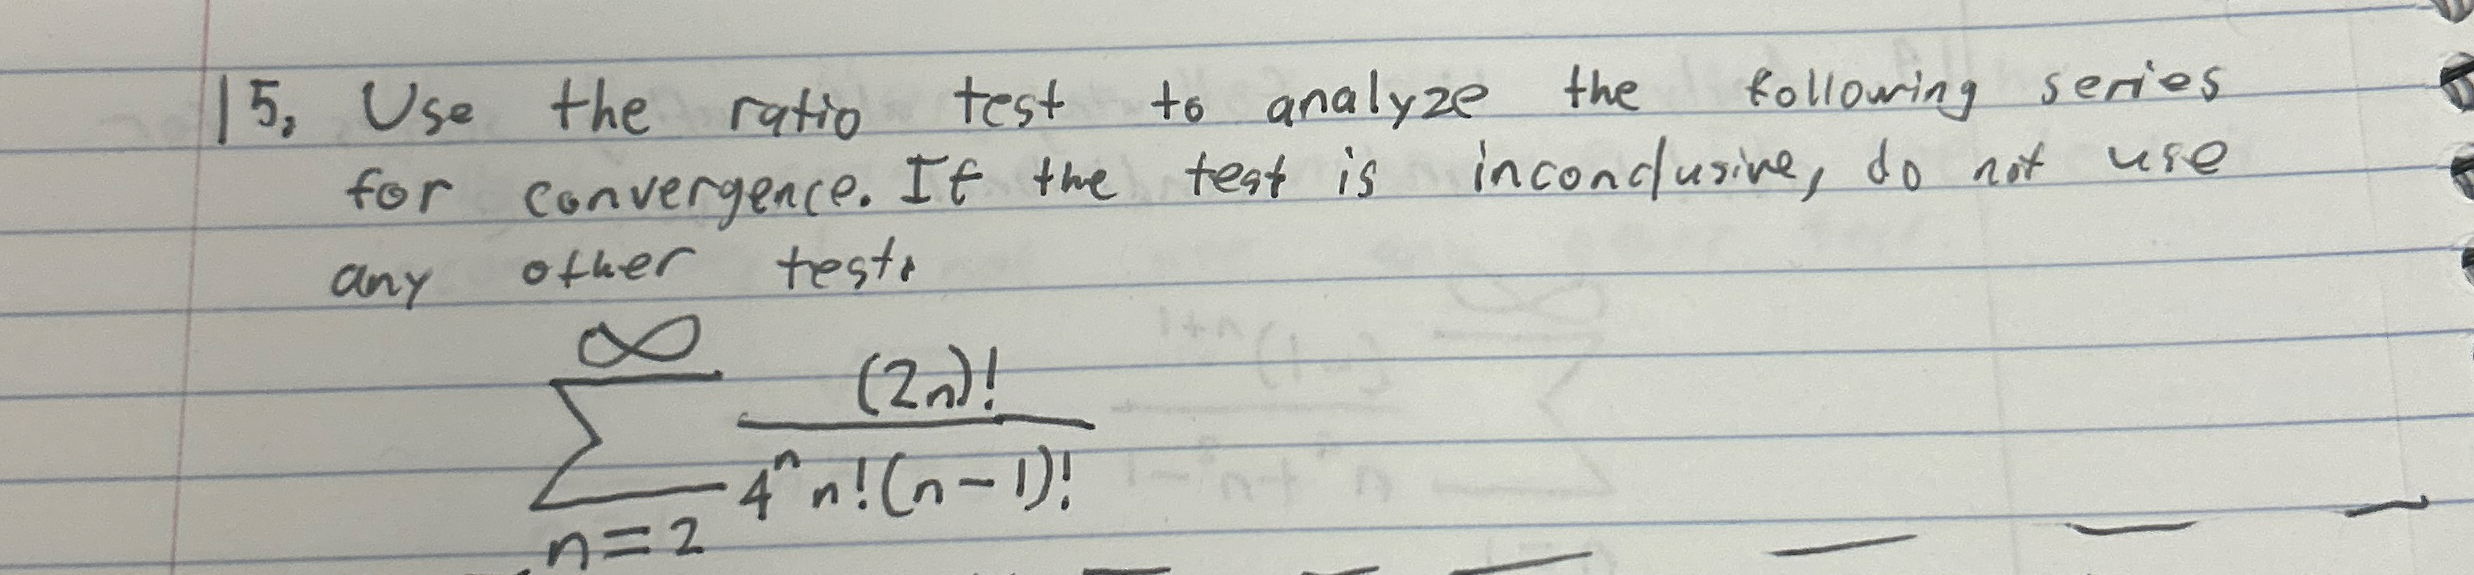 15. Use the ratio test to analyze the following series
for convergence. If the test is inconclusive, do not use
any other test.
∞
∑ (2n)! / 4ⁿ n!(n-1)!
n=2